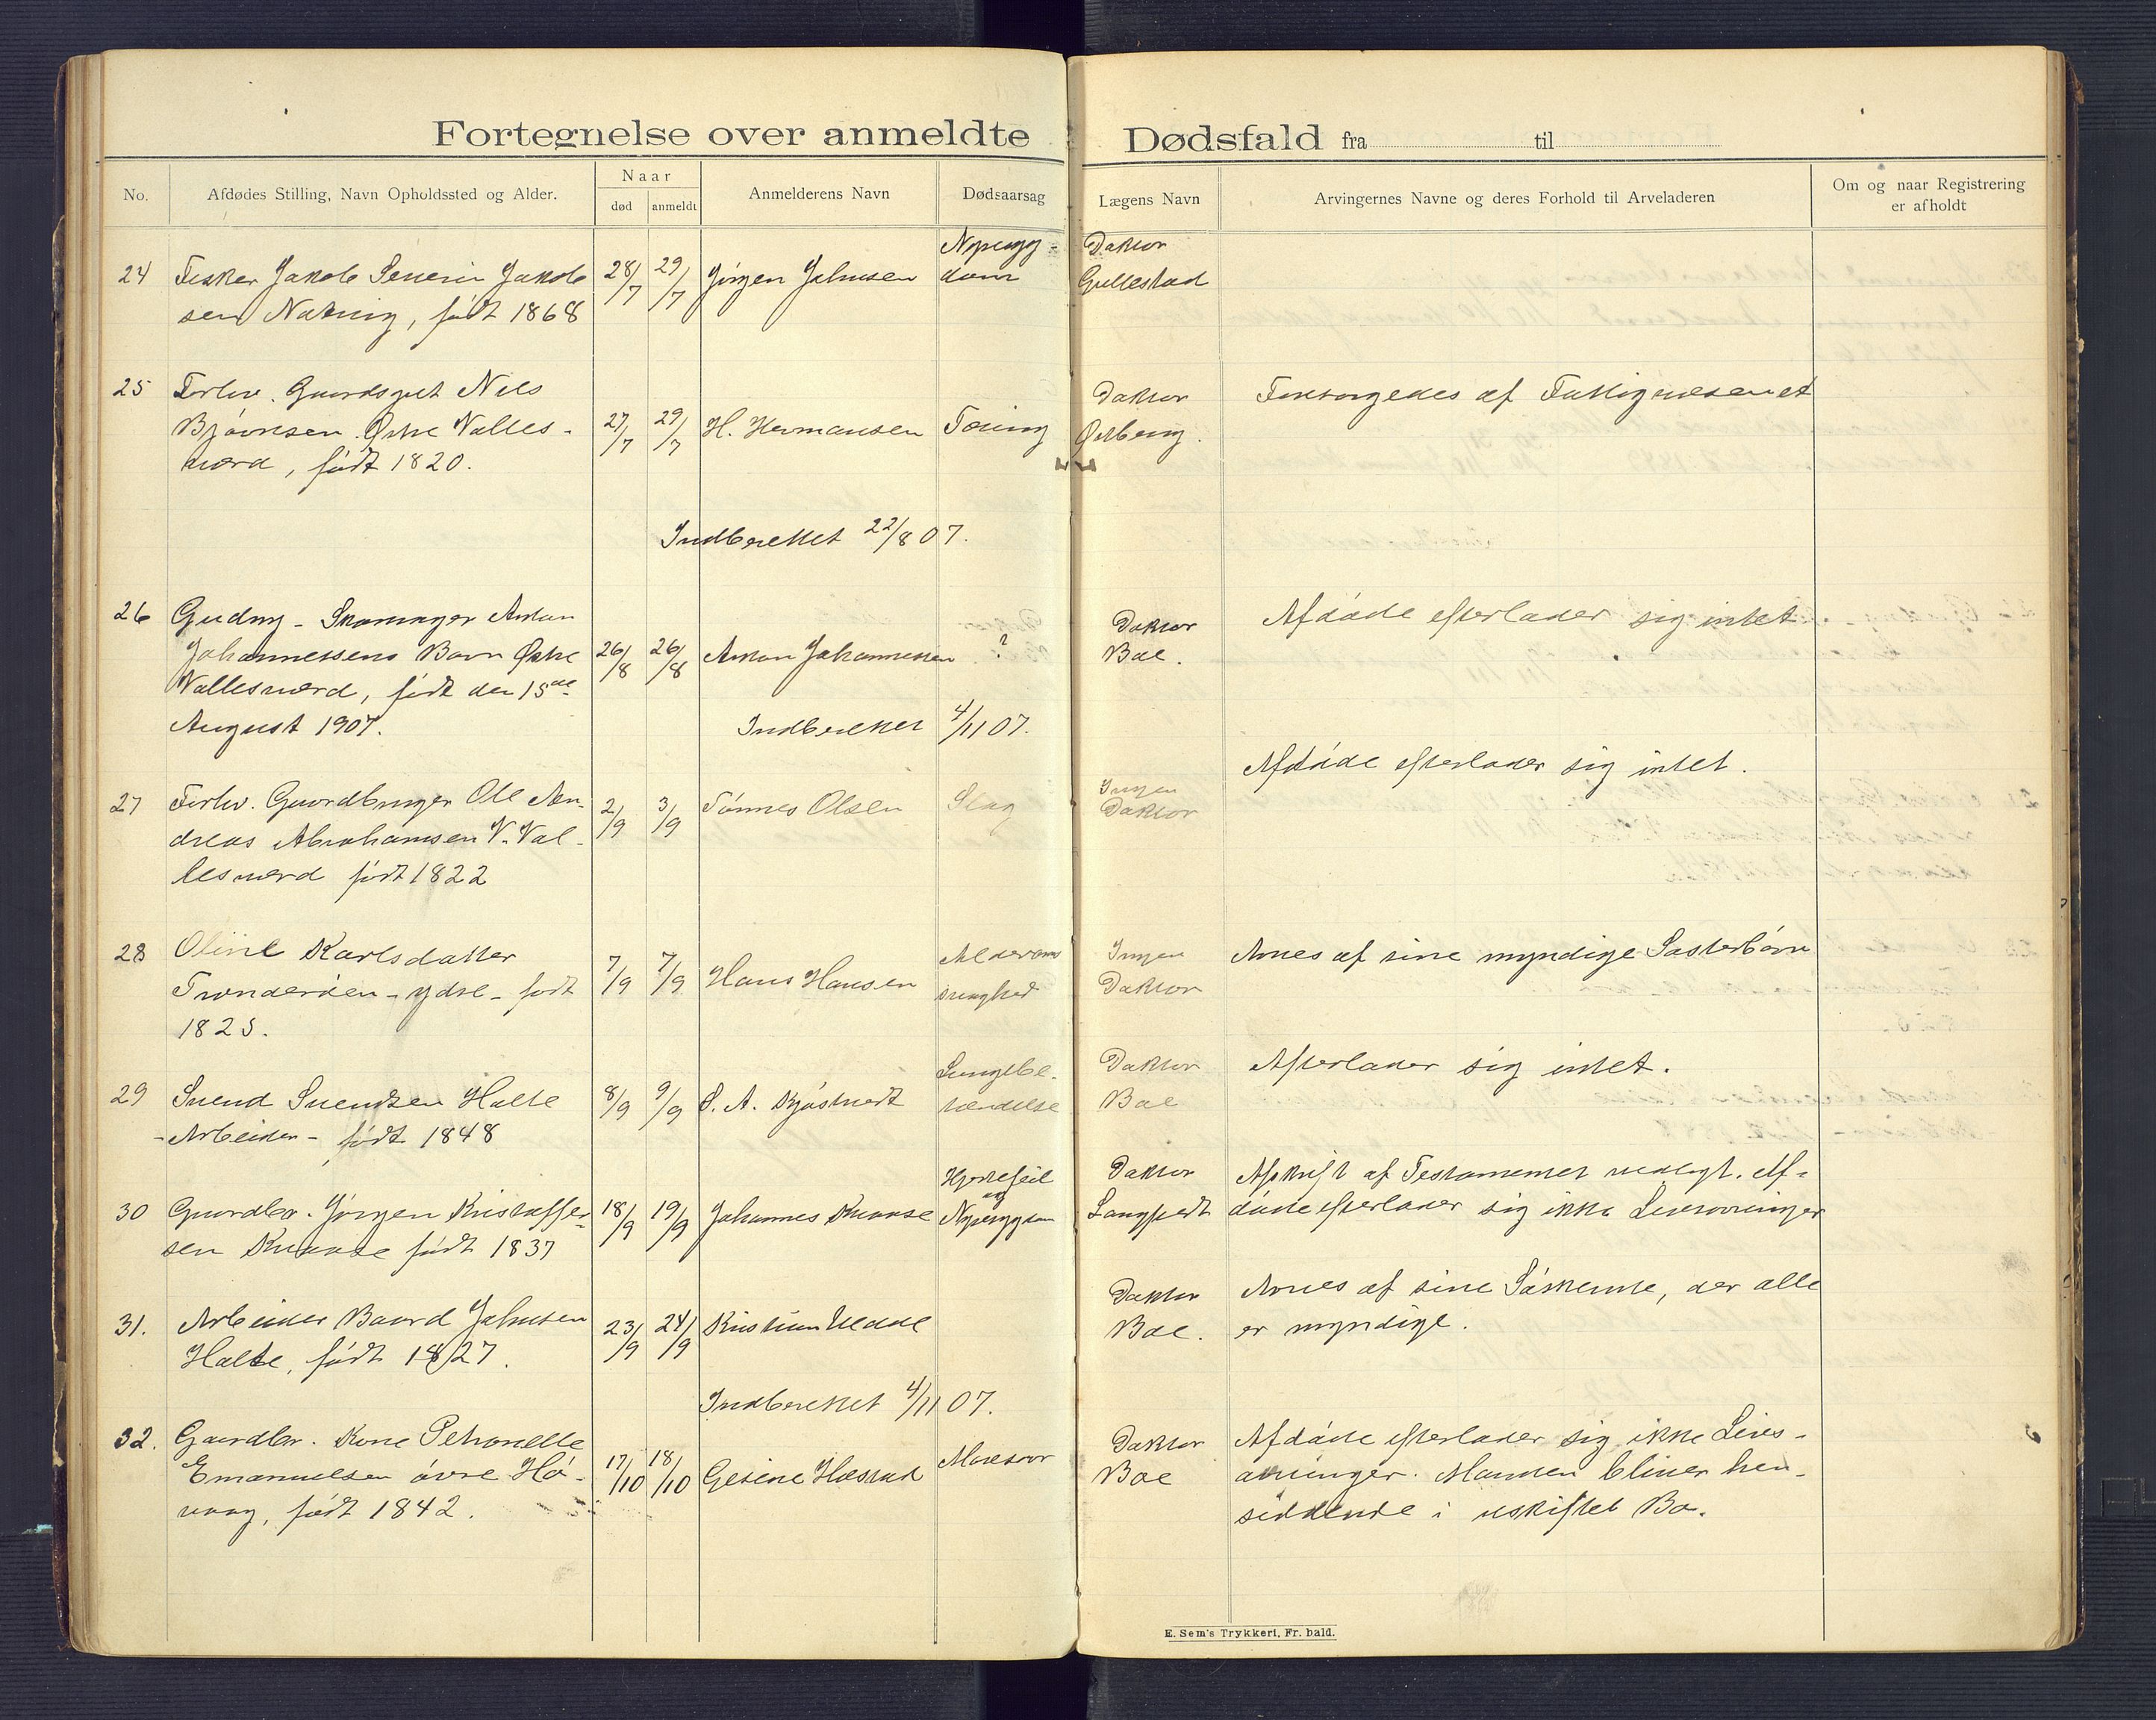 Fortegnelse over anmeldte Dødsfald fra til
No.
Afdødes Stilling, Navn Opholdssted og Alder.
Naar
død
anmeldt
Anmelderens Navn
Dødsaarsag
Lægens Navn
Arvingernes Navne og deres Forhold til Arveladeren
Om og naar Registrering
er afholdt
24 Fisker Jakob Severin Jakob
sen Natvig, født 1868
28/7 29/7 Jørgen Johnsen
Nyresyg-
dom
Doktor
Gullestad
25 Forhv. Gaardsgut Nils
Bjørnsen Østre Valles-
værd, født 1820.
27/7 29/7 H. Hermansen Tæring
Doktor
Østberg.
Forsørgedes af Fattigvæsenet
Indberettet 22/8 07.
26 Gudny - Skomager Anton
Johannessens Barn Østre
Vallesværd, født den 15de
August 1907.
26/8 26/8 Anton Johannessen ?
Doktor
Boe.
Afdøde efterlader sig intet
Indberettet 4/11 07.
27 Forhv. Gaardbruger Ole An-
dreas Abrahamsen V. Val-
lesværd født 1822
2/9 3/9 Tønnes Olsen Slag
Ingen
Doktor
Afdøde efterlader sig intet.
28 Oline Karlsdatter
Trønderøen - ydre - født
1825.
7/9 7/9 Hans Hansen
Alderdoms
svaghed
Ingen
Doktor
Arves af sine myndige Søsterbørn
29 Svend Svendsen Holte
- Arbeider - født 1848
8/9 9/9 S. A. Kjøstvedt
Lungebe-
tændelse
Doktor
Boe
Efterlader sig intet.
30 Gaardbr. Jørgen Kristoffer-
sen Knabse født 1837
18/9 19/9 Johannes
Hjertefeil
og
Nyresygdom
Doktor
Langfeldt
Afskrift af Testamentet vedlagt. Af-
døde efterlader sig ikke Livsarvinger
31. Arbeider Baard Johnsen
Holte, født 1827.
23/9 24/9 Kristian
Doktor
Boe.
Arves af sine Søskende, der alle
er myndige.
Indberettet 4/11 07.
32. Gaardbr. Kone Petronelle
Emanuelsen øvre Hø-
vaag, født 1842.
17/10 18/10 Gesine Hæstad
Mavesaar
Doktor
Boe
Afdøde efterlader sig ikke Livs-
arvinger. Manden bliver hen-
siddende i uskiftet Bo.
E. Sem's Trykkeri, Fr. hald.